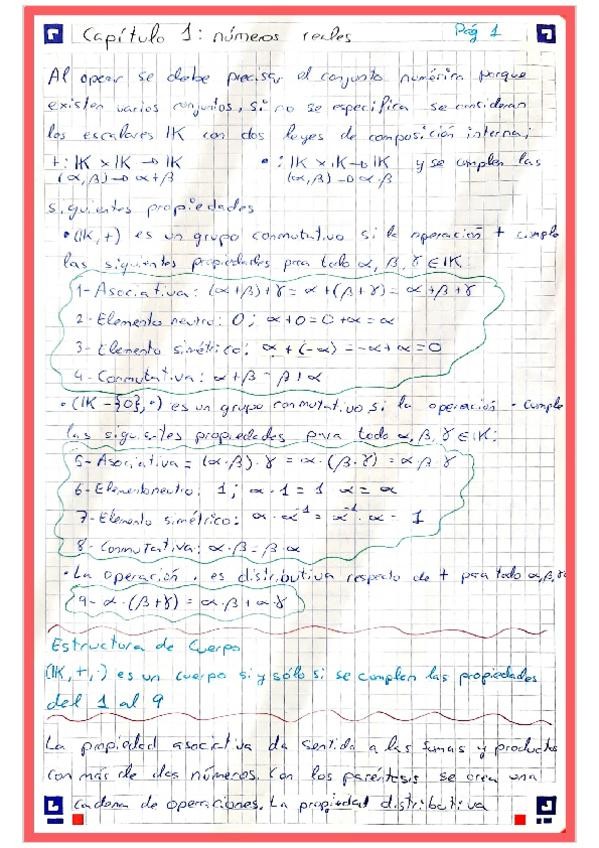 Capítulo 1: números reales Pág 1
Al operar se debe precisar el conjunto numérico porque
existen varios conjuntos, si no se especifica se consideran
los escalares IK con dos leyes de composición interna;
+: IK x IK → IK • : IK x IK → IK y se cumplen las
(α, β) → α+β (α, β) → α·β
siguientes propiedades
• (IK, +) es un grupo conmutativo si la operación + cumple
las siguientes propiedades para todo α, β, γ ∈ IK:
1- Asociativa: (α+β)+γ = α+(β+γ) = α+β+γ
2- Elemento neutro: 0; α+0=0+α=α
3- Elemento simétrico: α + (-α) = -α+α=0
4- Conmutativa: α+β = β+α
• (IK - {0}, •) es un grupo conmutativo si la operación · cumple
las siguientes propiedades para todo α, β, γ ∈ IK:
5- Asociativa = (α·β)·γ = α·(β·γ) = α·β·γ
6- Elemento neutro: 1; α·1 = 1 α = α
7- Elemento simétrico: α·α⁻¹ = α⁻¹·α = 1
8- Conmutativa: α·β = β·α
• La operación · es distributiva respecto de + para todo α, β, γ
9- α·(β+γ) = α·β + α·γ
Estructura de Cuerpo
(IK, +, ·) es un cuerpo si y sólo si se cumplen las propiedades
del 1 al 9
La propiedad asociativa da sentido a las sumas y productos
con más de dos números. Con los paréntesis se crea una
cadena de operaciones. La propiedad distributiva